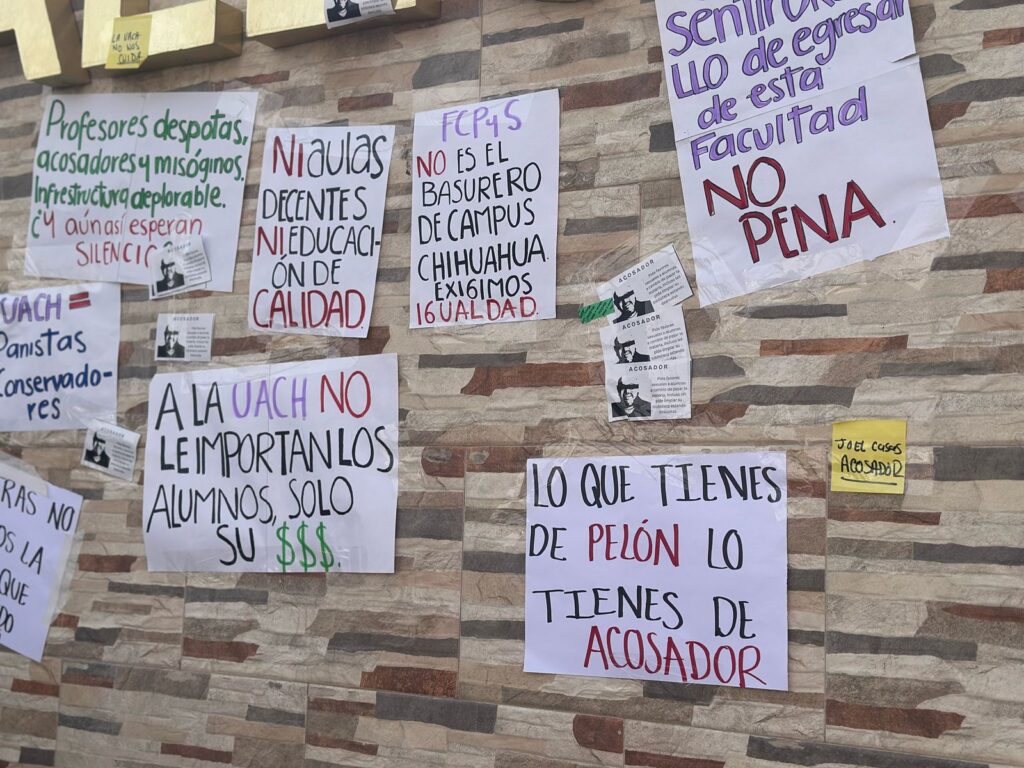 LA UACH
NO NOS
CUIDA
Profesores despotas,
acosadores y misóginos.
Infrestructura deplorable.
¿Y aún así esperan
SILENCIO
NI aulas
DECENTES
NI EDUCACI-
ÓN DE
CALIDAD.
FCPyS
NO ES EL
BASURERO
DE CAMPUS
CHIHUAHUA.
EXIGIMOS
IGUALDAD.
SENTIR
LLO de egresar
de esta
Facultad
NO
PENA.
UACH =
Panistas
Conservado-
res
A LA UACH NO
LE IMPORTAN LOS
ALUMNOS, SOLO
SU $$$.
NO
LA
QUE
ACOSADOR
ACOSADOR
ACOSADOR
ACOSADOR
ACOSADOR
LO QUE TIENES
DE PELÓN LO
TIENES DE
ACOSADOR
JOEL CASAS
ACOSADOR